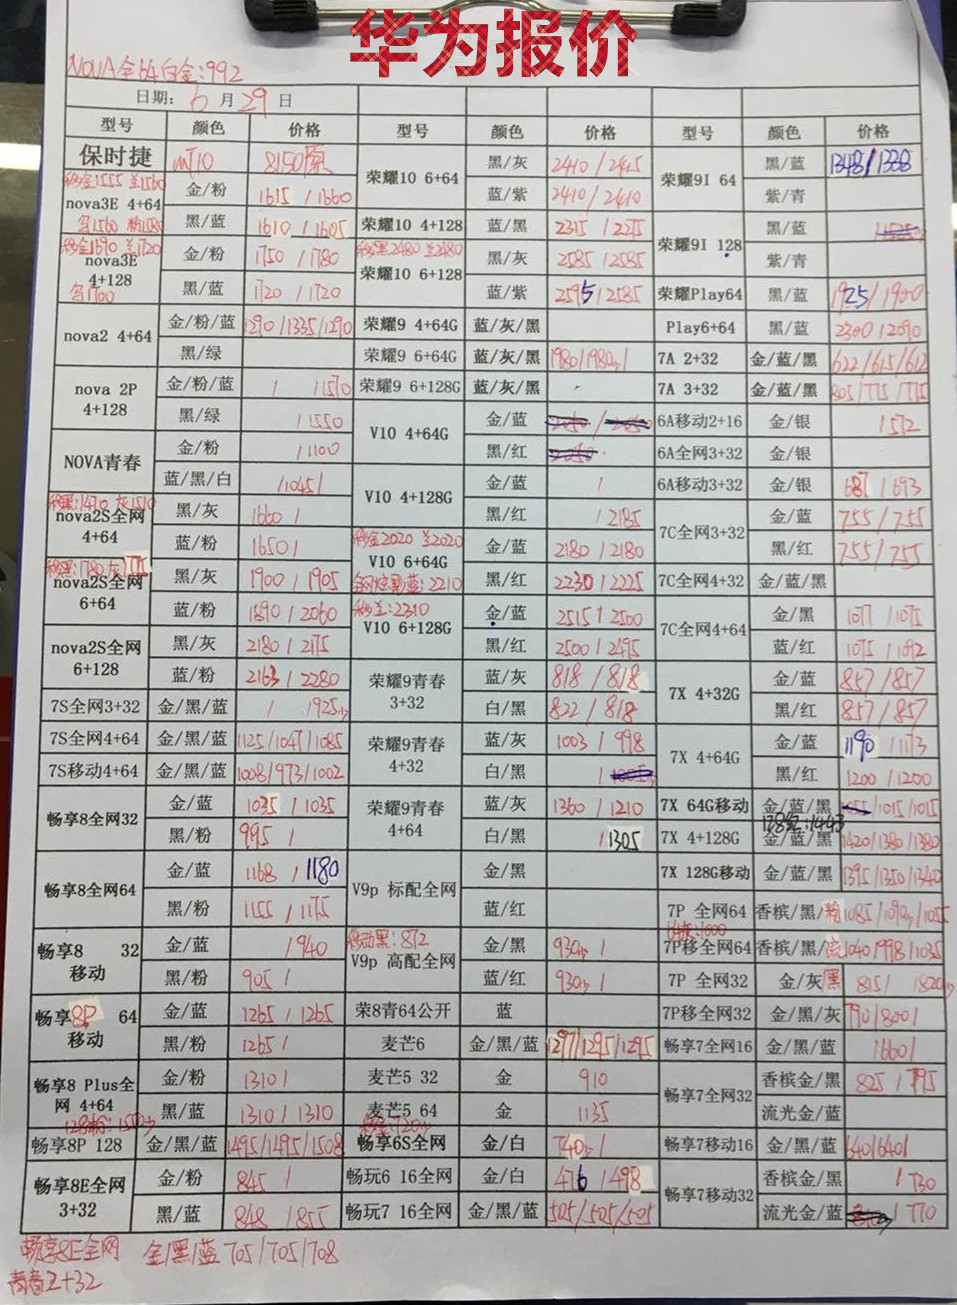 华为报价
NOVA全64白金:992
日期: 6 月 29 日
型号 颜色 价格 型号 颜色 价格 型号 颜色 价格
保时捷 mT10 8150原 荣耀10 6+64 黑/灰 2410/2415 荣耀9I 64 黑/蓝 1348/1338
移金1555 兰1560
nova3E 4+64 金/粉 1615/1660 蓝/紫 2410/2410 紫/青
1560
黑/蓝 1610/1605 荣耀10 4+128 蓝/黑 2315/2275 荣耀9I 128 黑/蓝
移金1690 兰1720 移黑2480 兰2480
nova3E 4+128 金/粉 1750/1780 荣耀10 6+128 黑/灰 2585/2585 紫/青
1700
黑/蓝 1720/1720 蓝/紫 2595/2585 荣耀Play64 黑/蓝 1925/1900
nova2 4+64 金/粉/蓝 1290/1335/1290 荣耀9 4+64G 蓝/灰/黑 Play6+64 黑/蓝 2300/2090
黑/绿 荣耀9 6+64G 蓝/灰/黑 1980/1980/ 7A 2+32 金/蓝/黑 622/615/612
nova 2P 4+128 金/粉/蓝 / /1570 荣耀9 6+128G 蓝/灰/黑 7A 3+32 金/蓝/黑 805/775/775
黑/绿 /1550 V10 4+64G 金/蓝 6A移动2+16 金/银 1572
NOVA青春 金/粉 /1100 黑/红 6A全网3+32 金/银
蓝/黑/白 /1045/ V10 4+128G 金/蓝 / 6A移动3+32 金/银 687/693
移黑:1470 灰1510
nova2S全网 4+64 黑/灰 1660/ 黑/红 /2185 7C全网3+32 金/蓝 755/755
移金2020 兰2020
蓝/粉 1650/ V10 6+64G 金/蓝 2180/2180 黑/红 755/755
移黑:1780
nova2S全网 6+64 黑/灰 1900/1905 黑/红 2230/2225 7C全网4+32 金/蓝/黑
蓝:2210
移兰:2310
蓝/粉 1890/2060 V10 6+128G 金/蓝 2515/2500 7C全网4+64 金/黑 1077/1075
nova2S全网 6+128 黑/灰 2180/2175 黑/红 2500/2495 蓝/红 1075/1092
蓝/粉 2163/2280 荣耀9青春 3+32 蓝/灰 818/818 7X 4+32G 金/蓝 857/857
7S全网3+32 金/黑/蓝 / /925 白/黑 822/818 黑/红 857/857
7S全网4+64 金/黑/蓝 1125/1047/1085 荣耀9青春 4+32 蓝/灰 1003/998 7X 4+64G 金/蓝 1190/1173
7S移动4+64 金/黑/蓝 1008/973/1002 白/黑 / 黑/红 1200/1200
畅享8全网32 金/蓝 1035/1035 荣耀9青春 4+64 蓝/灰 1360/1210 7X 64G移动 金/蓝/黑 /1015/1015
128红:1443
黑/粉 995/ 白/黑 /1305 7X 4+128G 金/蓝/黑 1420/1380/1380
畅享8全网64 金/蓝 1168/1180 V9p 标配全网 金/黑 7X 128G移动 金/蓝/黑 1395/1350/1340
黑/粉 1155/1175 蓝/红 7P 全网64 香槟/黑/粉 1085/1090/1055
移动黑:872
畅享8 32 移动 金/蓝 /940 V9p 高配全网 金/黑 930/ 7P移全网64 香槟/黑/流 1040/998/1035
黑/粉 905/ 蓝/红 930/ 7P 全网32 金/灰黑 815/ /820
畅享8P 64 移动 金/蓝 1265/1265 荣8青64公开 蓝 7P移全网32 金/黑/灰 790/800/
黑/粉 1265/ 麦芒6 金/黑/蓝 1297/1295/1295 畅享7全网16 金/黑/蓝 /660/
畅享8 Plus全网 4+64 金/粉 1310/ 麦芒5 32 金 910 畅享7全网32 香槟金/黑 825/795
黑/蓝 1310/1310 麦芒5 64 金 1135 流光金/蓝
畅享8P 128 金/黑/蓝 1495/1495/1508 畅享6S全网 金/白 740/ 畅享7移动16 金/黑/蓝 640/640/
畅享8E全网 3+32 金/粉 845/ 畅玩6 16全网 金/白 476/498 畅享7移动32 香槟金/黑 /730
黑/蓝 848/855 畅玩7 16全网 金/黑/蓝 505/505/505 流光金/蓝 /770
畅享8E全网 金/黑/蓝 705/705/708
青春2+32